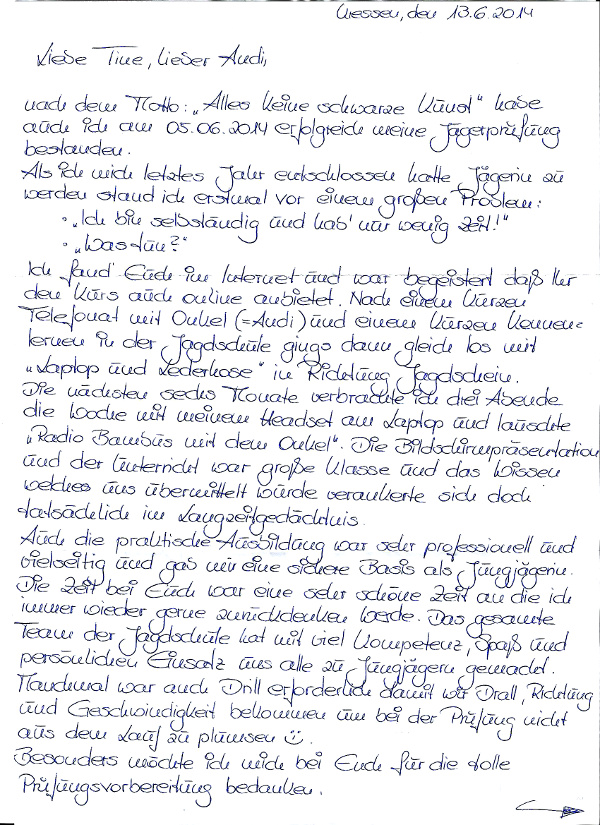 Wessen, den 13.6.2014
Liebe Tine, lieber Audi,
nach dem Motto: „Alles keine schwarze Kunst" habe
auch ich am 05.06.2014 erfolgreich meine Jägerprüfung
bestanden.
Als ich mich letztes Jahr entschlossen hatte Jägerin zu
werden stand ich erstmal vor einem großen Problem:
• „Ich bin selbständig und hab' nur wenig Zeit!"
• „Was tun?"
Ich fand Euch im Internet und war begeistert daß Ihr
den Kurs auch online anbietet. Nach einem kurzen
Telefonat mit Onkel (=Audi) und einem kurzen Kennen=
lernen in der Jagdschule gings dann gleich los mit
„Laptop und Lederhose" in Richtung Jagdschein.
Die nächsten sechs Monate verbrachte ich drei Abende
die Woche mit meinem Headset am Laptop und lauschte
„Radio Bambus mit dem Onkel". Die Bildschirmpräsentation
und der Unterricht war große Klasse und das Wissen
welches uns übermittelt wurde verankerte sich doch
tatsächlich im Langzeitgedächtnis.
Auch die praktische Ausbildung war sehr professionell und
vielseitig und gab mir eine sichere Basis als Jungjägerin.
Die Zeit bei Euch war eine sehr schöne Zeit an die ich
immer wieder gerne zurückdenken werde. Das gesamte
Team der Jagdschule hat mit viel Kompetenz, Spaß und
persönlichen Einsatz uns alle zu Jungjägern gemacht.
Manchmal war auch Drill erforderlich damit wir Drall, Richtung
und Geschwindigkeit bekommen um bei der Prüfung nicht
aus dem Lauf zu plumsen ☺.
Besonders möchte ich mich bei Euch für die tolle
Prüfungsvorbereitung bedanken.